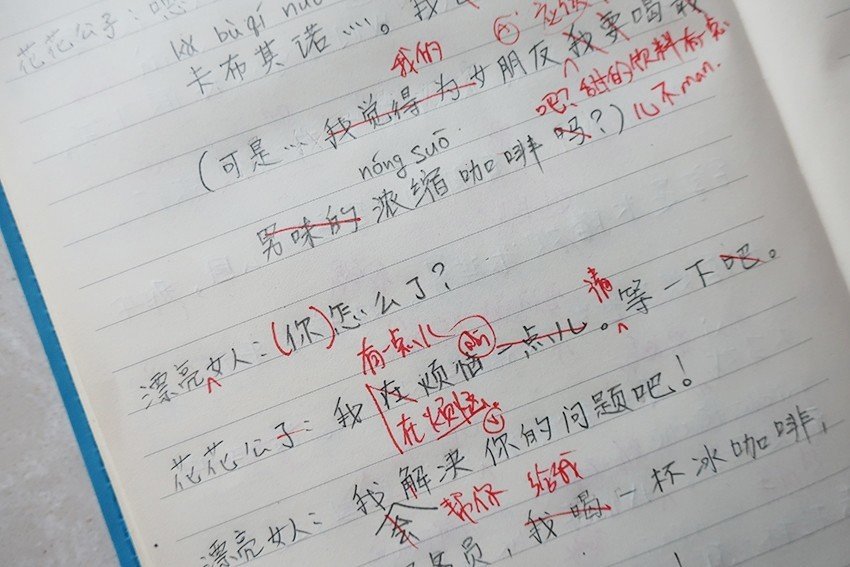 花花公子：嗯
kǎ bù qí nuò
卡布其诺…。我
我们
(可是…我觉得为女朋友我要喝我
吧？甜的饮料有点
儿不man.
nóng suō
男味的浓缩咖啡吗？)
漂亮女人：(你)怎么了？
有一点儿 请
花花公子：我在烦恼一点儿。等一下吧。
在烦恼。
漂亮女人：我解决你的问题吧！
会 帮你 给我
员，我喝一杯冰咖啡，